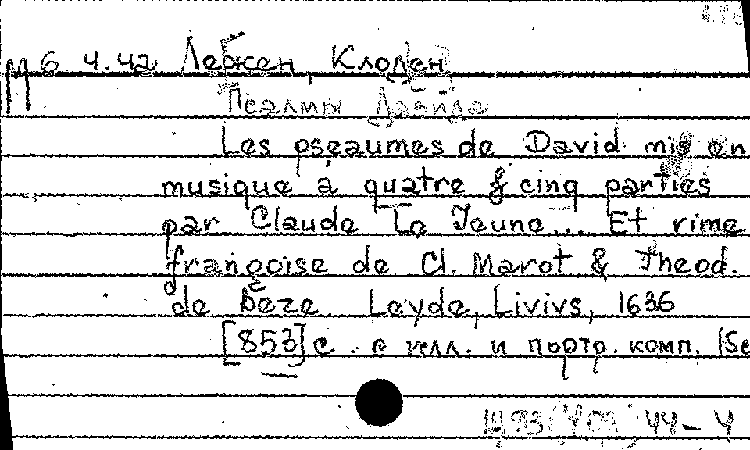 М 6 4.42 Лежен, Клоден
Псалмы Давида
Les pseaumes de David mis en
musique à quatre & cinq parties
par Claude Le Jeune... Et rime
françoise de Cl. Marot & Theod.
de Bèze. Leyde, Livivs, 1636
[853] с. с илл. и портр. комп. (Se
44-4